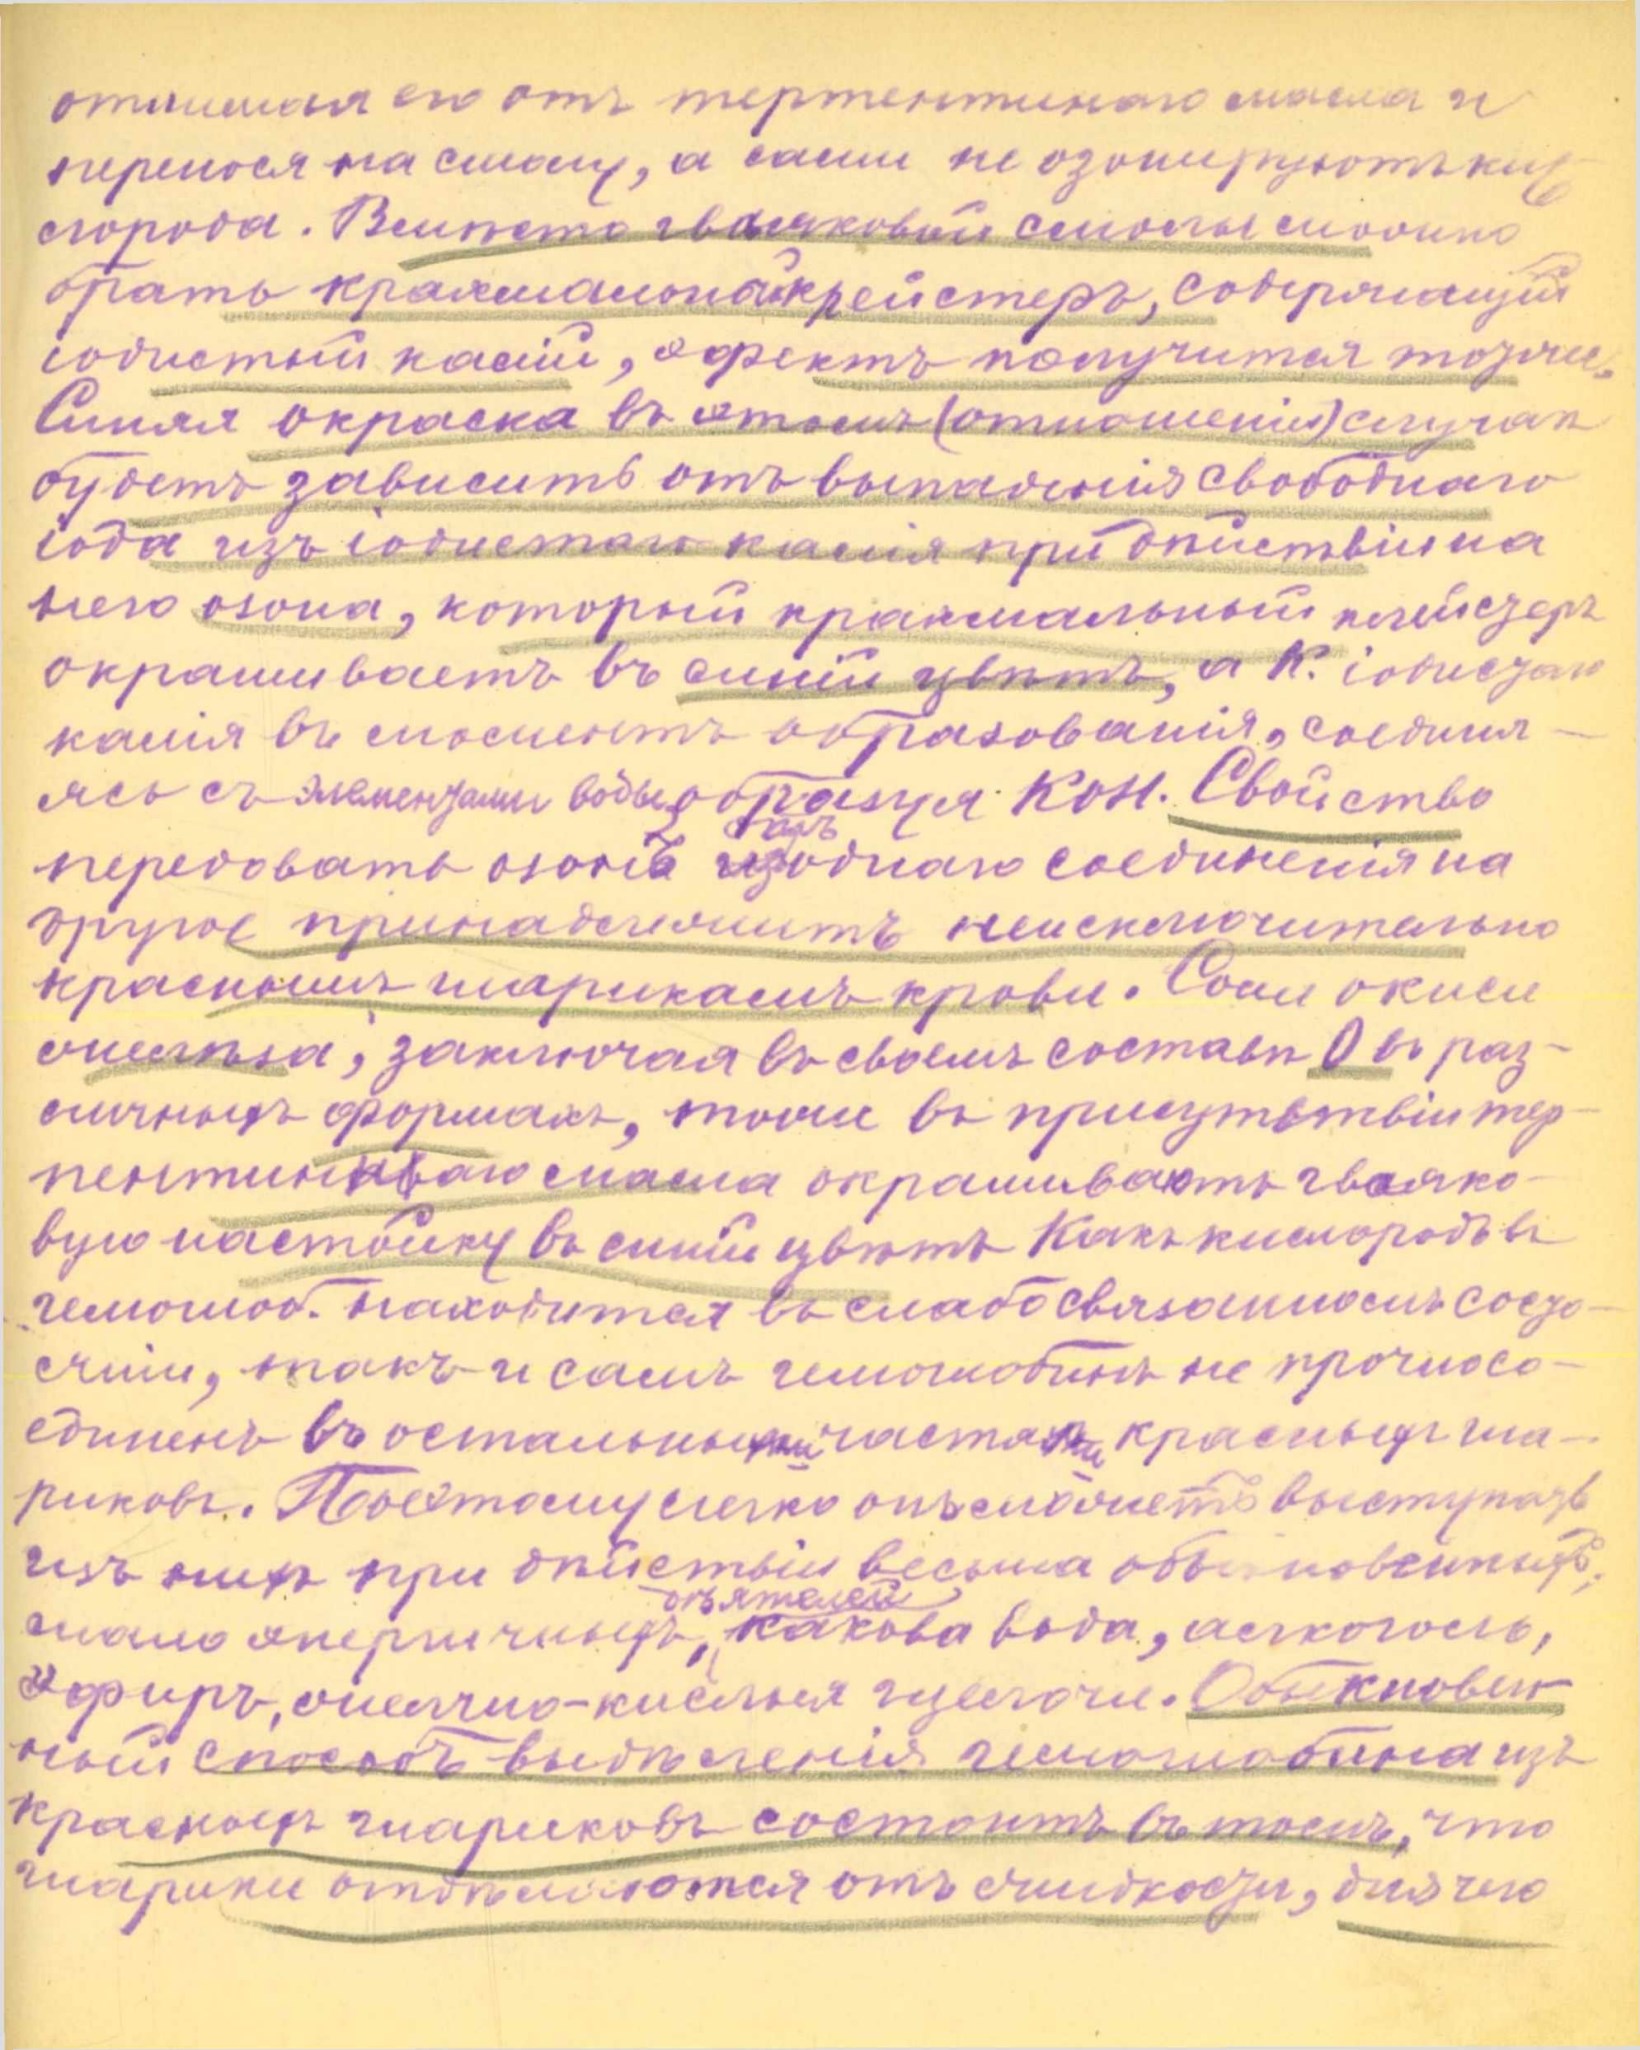 отнимая его отъ терпентинаго масла и
перенося на смолу, а сами не озонируютъ кис
лорода. Вмѣсто гваяковой смолы можно
брать крахмальный клейстеръ, содержащій
іодистый калій, эфектъ получится тотже.
Синяя окраска въ этомъ (отношеніи) случаѣ
будетъ зависить отъ выпаденія свободнаго
іода изъ іодистаго калія при дѣйствіи на
него озона, который крахмальный клейстеръ
окрашиваетъ въ синій цвѣтъ, а К. іодистаго
калія въ моментъ образованія, соединя-
ясь съ элементами воды, образуя КОН. Свойство
передовать озонъ отъ одного соединенія на
другое принадлежитъ неисключительно
краснымъ шарикамъ крови. Соли окиси
желѣза, заключая въ своемъ составѣ О въ раз-
личныхъ формахъ, тоже въ присутствіи тер-
пентиннаго масла окрашиваютъ гваяко-
вую настойку въ синій цвѣтъ Какъ кислородъ въ
гемоглоб. находится въ слабо связанномъ состо-
яніи, такъ и самъ гемоглобинъ не прочно со-
единенъ съ остальными частями красныхъ ша-
риковъ. Поэтому легко онъ можетъ выступать
изъ нихъ при дѣйствіи весьма обыкновенныхъ,
мало энергичныхъ дѣятелей, какова вода, алкоголь,
эфиръ, желчно-кислыя щелочи. Обыкновен
ный способъ выдѣленія гемоглобина изъ
красныхъ шариковъ состоитъ въ томъ, что
шарики отдѣляются отъ жидкости, для чего